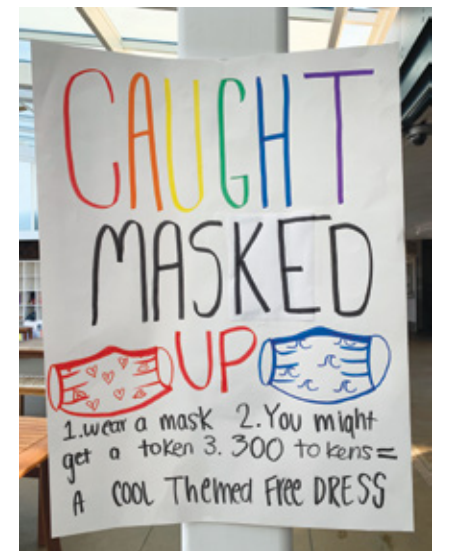 CAUGHT
MASKED
UP
1. wear a mask 2. You might
get a token 3. 300 tokens =
A COOL Themed Free DRESS